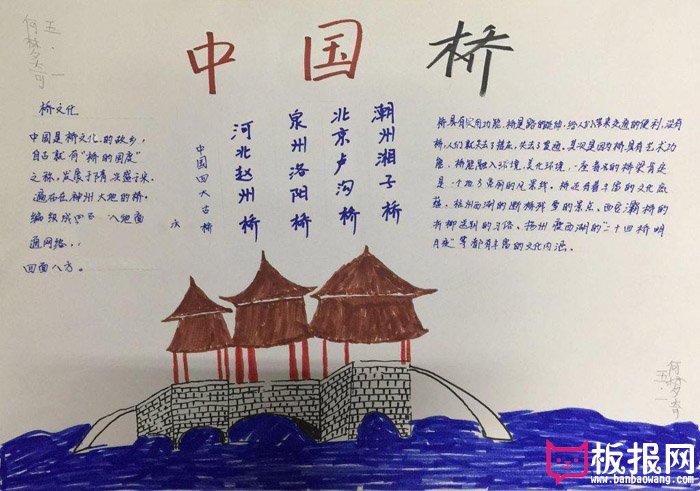 五.一
何梦奇
中国桥
桥文化
中国是桥文化的故乡,
自古就有"桥的国度"
之称,发展于隋兴盛于宋.
遍布在神州大地的桥,
编织成四 八
通网络,,
四面八方。
中国四大古桥
河北赵州桥
泉州洛阳桥
北京卢沟桥
潮州湘子桥
桥具有实用功能,桥是路的延伸,给人们带来交通的便利,没有
桥,人们就失去了捷 ,失去了 通。其次是因为桥具有艺术功
能,桥能融入环境,美化环境,一座著名的桥梁肯定
是一个地方亮丽的风景线。桥还有着丰富的文化底
蕴,杭州西湖的断桥残雪的景点、西安灞桥的
折柳送别的习俗、扬州瘦西湖的"二十四桥明
月夜"等都有丰富的文化内涵。
何梦奇
五.一
板报网
www.banbaowang.com